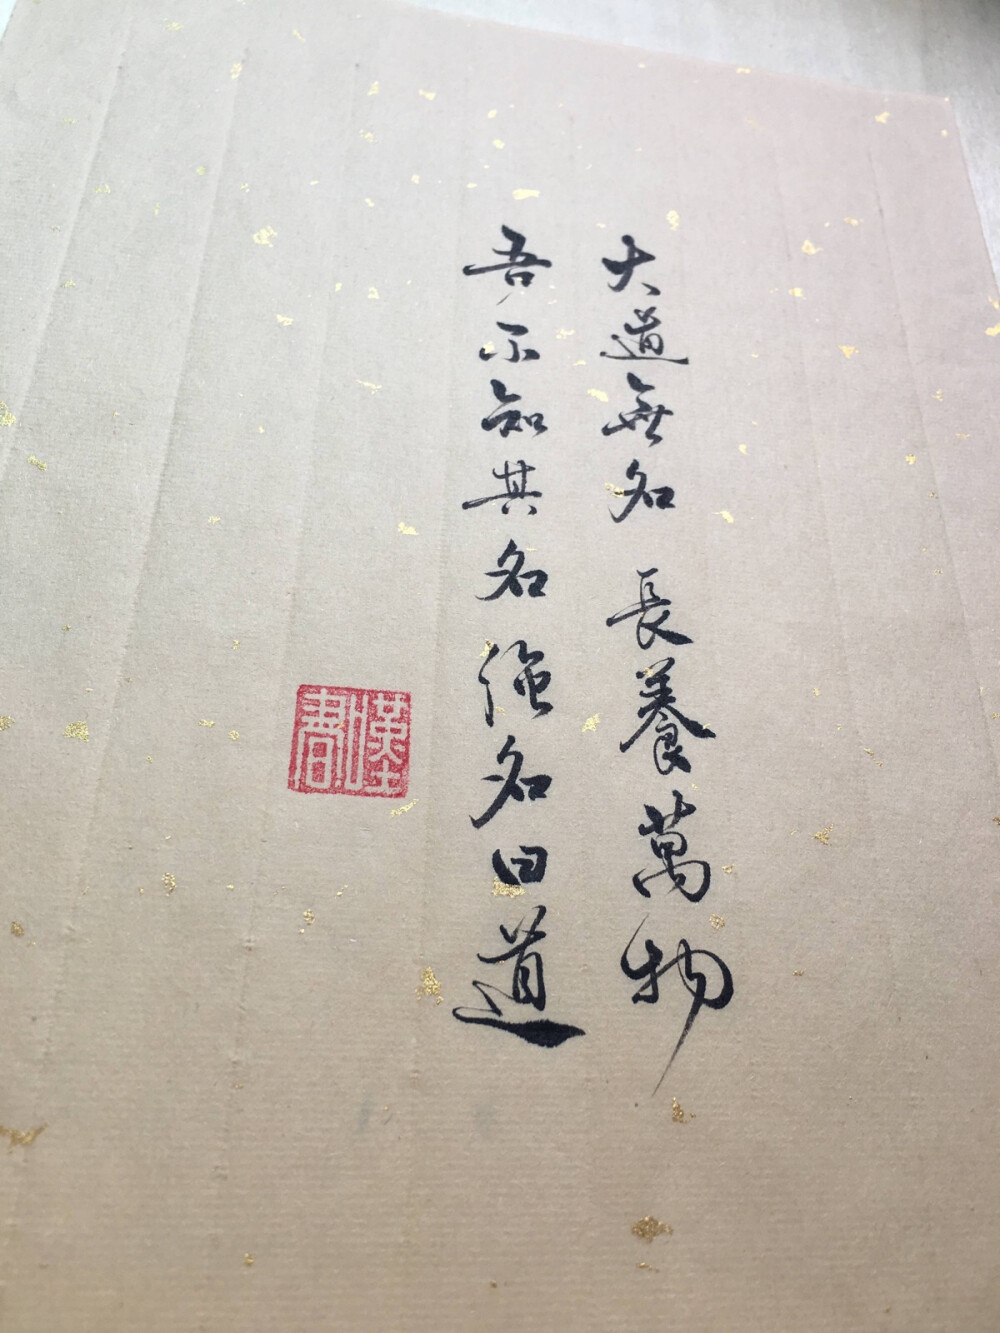 大道無名 長養萬物
吾不知其名強名曰道